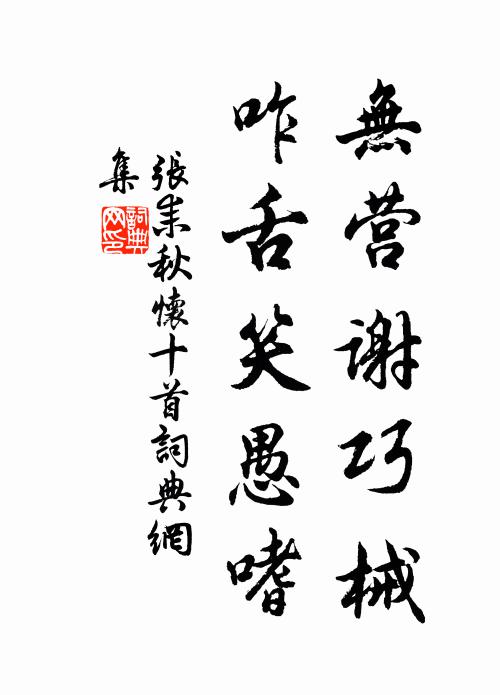 無营谢巧械
咋舌笑愚嗜
張耒秋懷十首詞典網
集
詞典网印